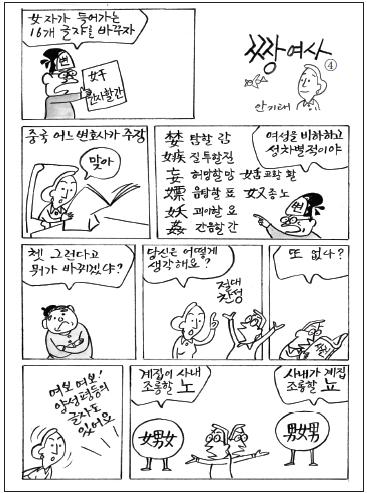 女자가 들어가는
16개 글자를 바꾸자
변
女子
간사할간
짱여사
④
안기태
중국 어느 변호사가 주장
맞아
婪 탐할 감
嫉 질투할질
妄 허망할망
嫖 음탕할 표
妖 괴이할 요
姦 간음할 간
姡 교활 활
奴 종 노
여성을 비하하고
성차별적이야
변
쳇 그런다고
뭐가 바뀌겠냐?
당신은 어떻게
생각해요?
절대
찬성
또 없나?
여보 여보!
양성평등의
글자도
있어요
계집이 사내
조롱할 노
女男女
사내가 계집
조롱할 뇨
男女男